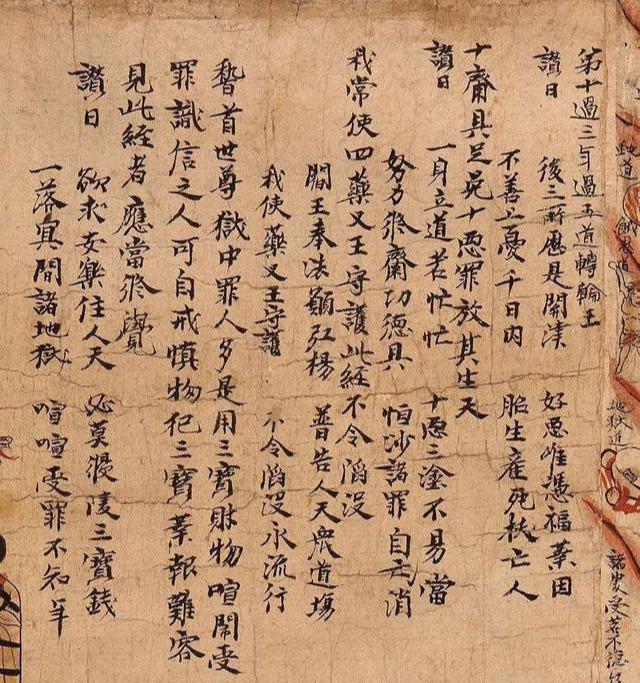 餓鬼道
地獄道
第十過三年過五道轉輪王
讃曰 後三所歷是關津 好惡惟憑福業因
不善上憂千日內 胎生産死拔亡人
十齋具足免十惡罪放其生天
讃曰 一身六道苦忙忙 十惡三塗不易當
努力修齋功德具 恒沙諸罪自亡消
我常使四藥叉王守護此經不令陷沒
閻王奉法願弘楊 普告人天衆道場
我使藥叉王守護 不令陷沒永流行
稽首世尊獄中罪人多是用三寶財物喧閙受
罪識信之人可自戒慎物犯三寶業報難容
見此經者應當修覺
讃曰 欲求安樂住人天 必莫侵陵三寶錢
一落冥間諸地獄 喧喧受罪不知年